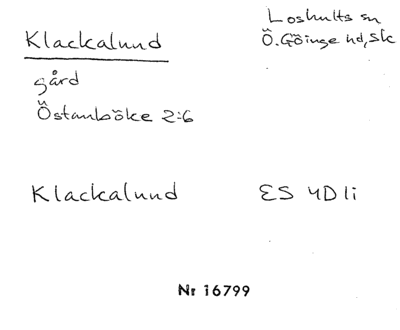 Klackalund
Loshults sn
Ö. Göinge hd, Sk
gård
Östanböke 2:6
Klackalund
ES 4D 1i
Nr 16799